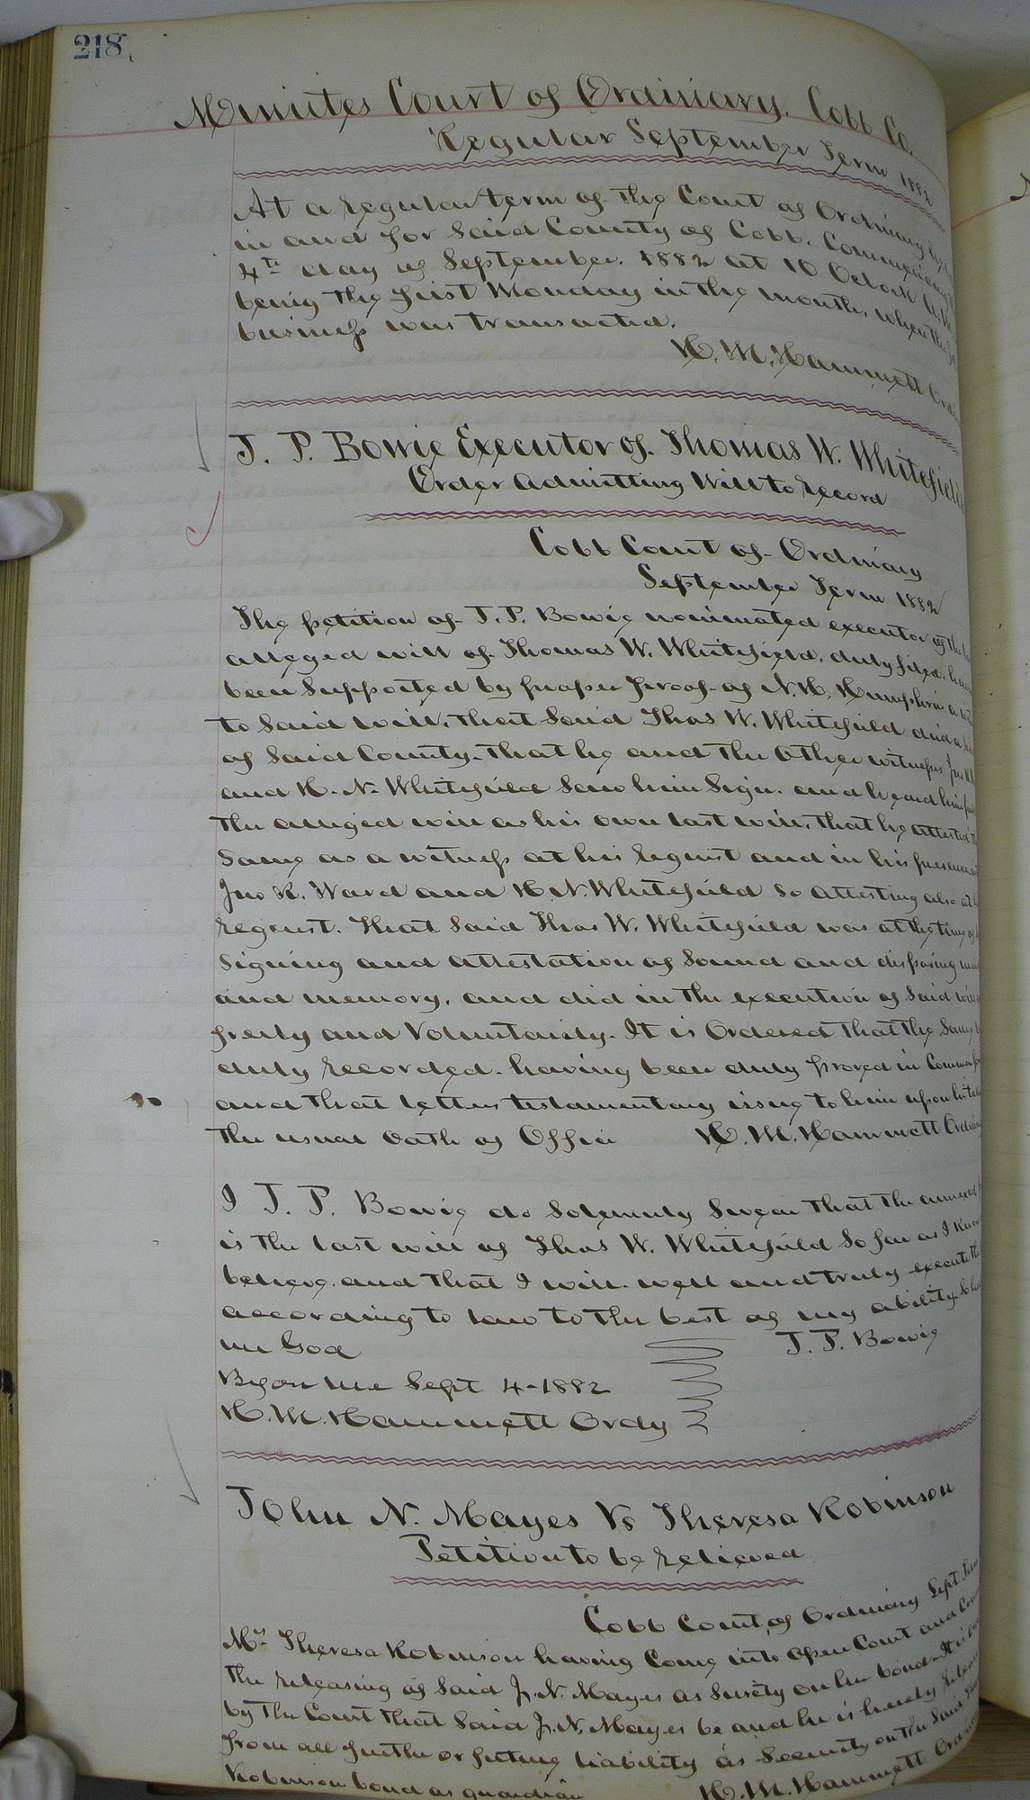 218.
Minutes Court of Ordinary. Cobb Co.
Regular September Term 1882
At a regular term of the Court of Ordinary
in and for Said County of Cobb. Commencing
4th day of September. 1882 at 10 Oclock A.M.
being the first Monday in the month, when the
business was transacted.
H. M. Hammett
J. P. Bowie Executor of. Thomas W. Whitefield
Order Admitting Will to record
Cobb Court of Ordinary
September Term 1882
The petition of J. P. Bowie nominated executor of the
alleged will of Thomas W. Whitefield. duly filed.
been Supported by proper proof of N. H. Humphries a
to Said will, that Said Thos W. Whitefield died a
of Said County. that he and the Other witness
and H. N. Whitefield Saw him Sign. and heard him
the alleged will as his own last will, that he attested
Same as a witness at his request and in his presence
Jno R. Ward and H. N. Whitefield So Attesting also at
request. That Said Thos W. Whitefield was at the time of
Signing and attestation of Sound and disposing
and memory, and did in the execution of Said will
freely and Voluntarily. It is Ordered that the Same
duly recorded. having been duly proved in Common
and that letters testamentary issue to him upon
the usual Oath of Office H. M. Hammett
I J. P. Bowie do Solemnly Swear that the
is the last will of Thos W. Whitefield So far as I Know
believe. and that I will. well and truly execute the
according to law to the best of my ability
me God J. P. Bowie
Before me Sept 4-1882
H. M. Hammett Ordy
John N. Mayes Vs Theresa Robinson
Petition to be relieved
Cobb Court of Ordinary Sept Term
Mrs Theresa Robinson having Come into Open Court and
the releasing of Said J. N. Mayes as Surety on her bond. It is
by the Court that Said J. N. Mayes be and he is hereby
from all further or future liability as Security on the Said
Robinson bond as guardian
H. M. Hammett